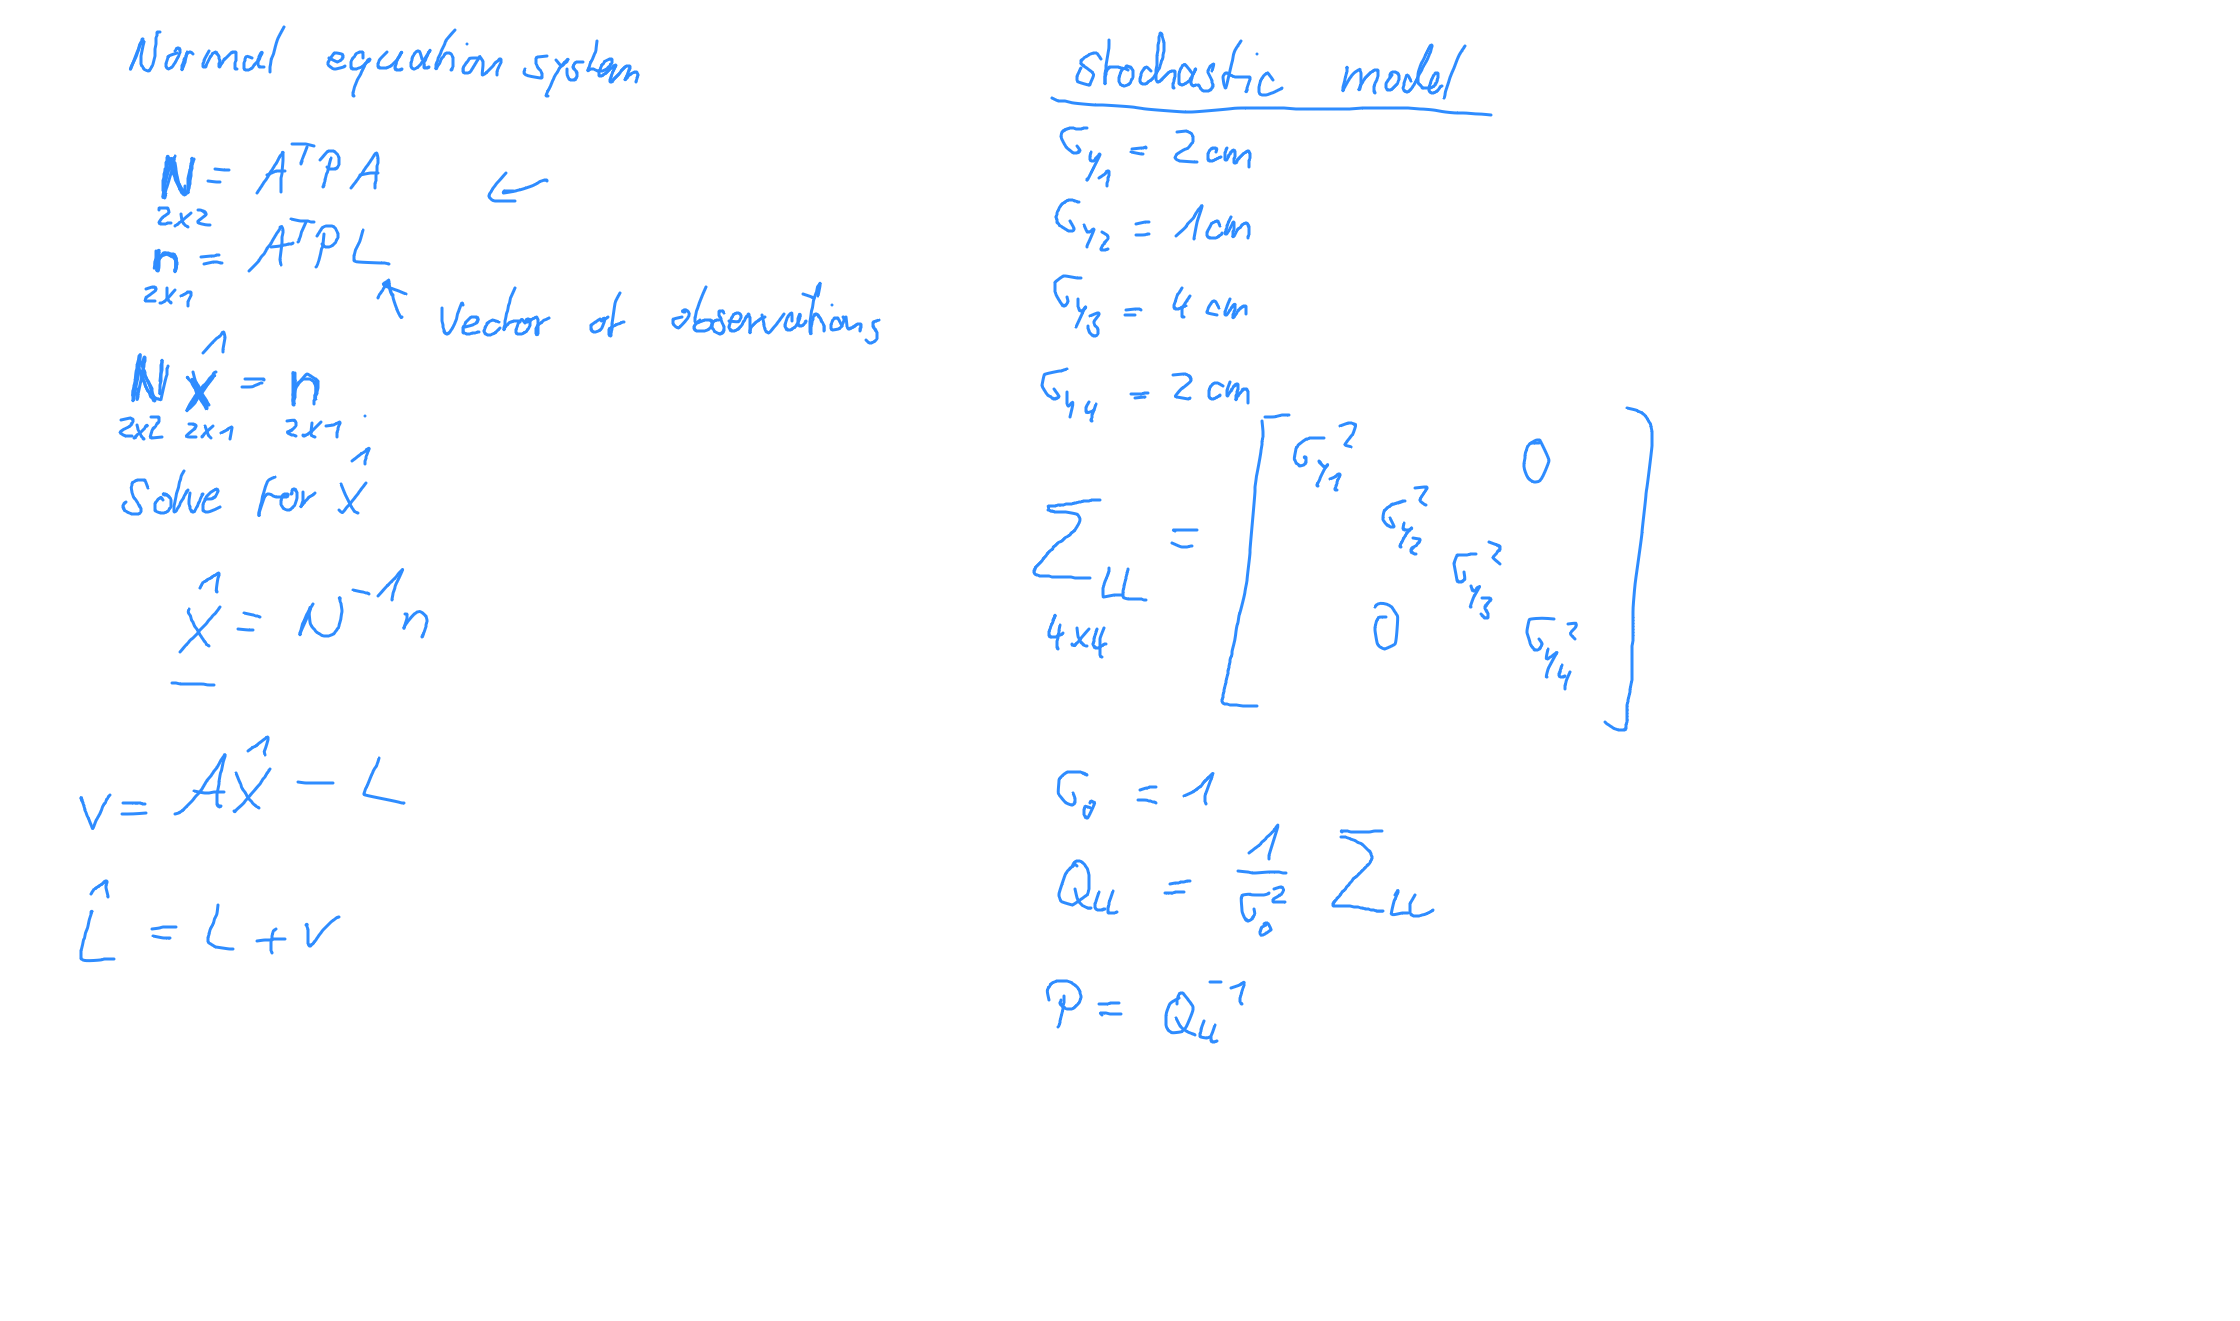 Normal equation system
N = AᵀPA
2x2
n = AᵀPL
2x1
Vector of observations
N x̂ = n
2x2 2x1 2x1
Solve for x̂
x̂ = N⁻¹n
v = Ax̂ - L
L̂ = L + v
stochastic model
σy₁ = 2 cm
σy₂ = 1 cm
σy₃ = 4 cm
σy₄ = 2 cm
Σ_LL = [ σy₁² 0
σy₂²
σy₃²
0 σy₄² ]
4x4
σ₀ = 1
Q_LL = 1/σ₀² Σ_LL
P = Q_LL⁻¹